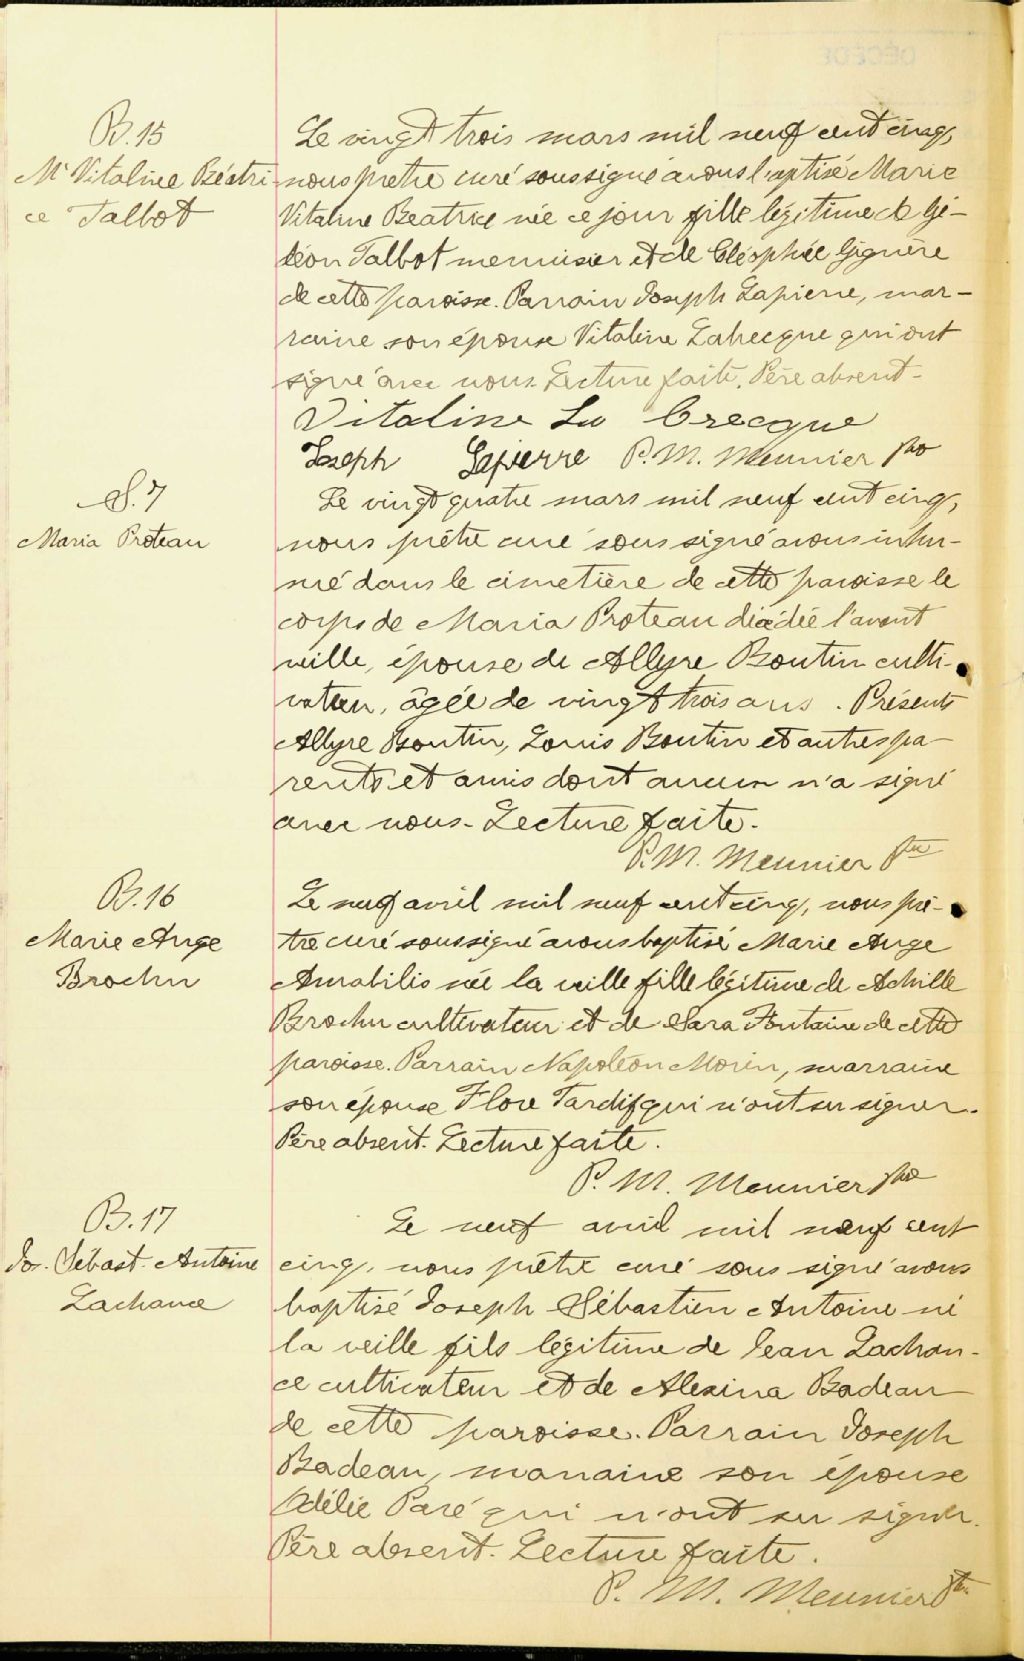 B.15
Mie Vitaline Béatri
ce Talbot
Le vingt trois mars mil neuf cent cinq,
nous prêtre curé soussigné avons baptisé Marie
Vitaline Beatrice née ce jour fille légitime de Gé-
déon Talbot menuisier et de Cléophée Gignère
de cette paroisse. Parrain Joseph Lapierre, mar-
raine son épouse Vitaline Labrecque qui ont
signé avec nous. Lecture faite. Père absent-
Vitaline La Brecque
Joseph Lapierre P. M. Meunier ptre
S. 7
Maria Proteau
Le vingt quatre mars mil neuf cent cinq,
nous prêtre curé sous signé avons inhu-
mé dans le cimetière de cette paroisse le
corps de Maria Proteau décédée l'avant
veille, épouse de Allyre Boutin culti-
vateur, âgée de vingt trois ans. Présents
Allyre Boutin, Louis Boutin et autres pa-
rents et amis dont aucun n'a signé
avec nous- Lecture faite.
P. M. Meunier ptre
B. 16
Marie Ange
Brochu
Le neuf avril mil neuf cent cinq, nous prê-
tre curé soussigné avons baptisé Marie Ange
Amabilis née la veille fille légitime de Achille
Brochu cultivateur et de Sara Fontaine de cette
paroisse. Parrain Napoléon Morin, marraine
son épouse Flore Tardif qui n'ont su signer.
Père absent. Lecture faite.
P. M. Meunier ptre
B. 17
Jos. Sébast. Antoine
Lachance
Le neuf avril mil neuf cent
cinq, nous prêtre curé sous signé avons
baptisé Joseph Sébastien Antoine né
la veille fils légitime de Jean Lachan-
ce cultivateur et de Alexina Badeau
de cette paroisse. Parrain Joseph
Badeau, marraine son épouse
Odélie Paré qui n'ont su signer.
Père absent. Lecture faite.
P. M. Meunier ptre